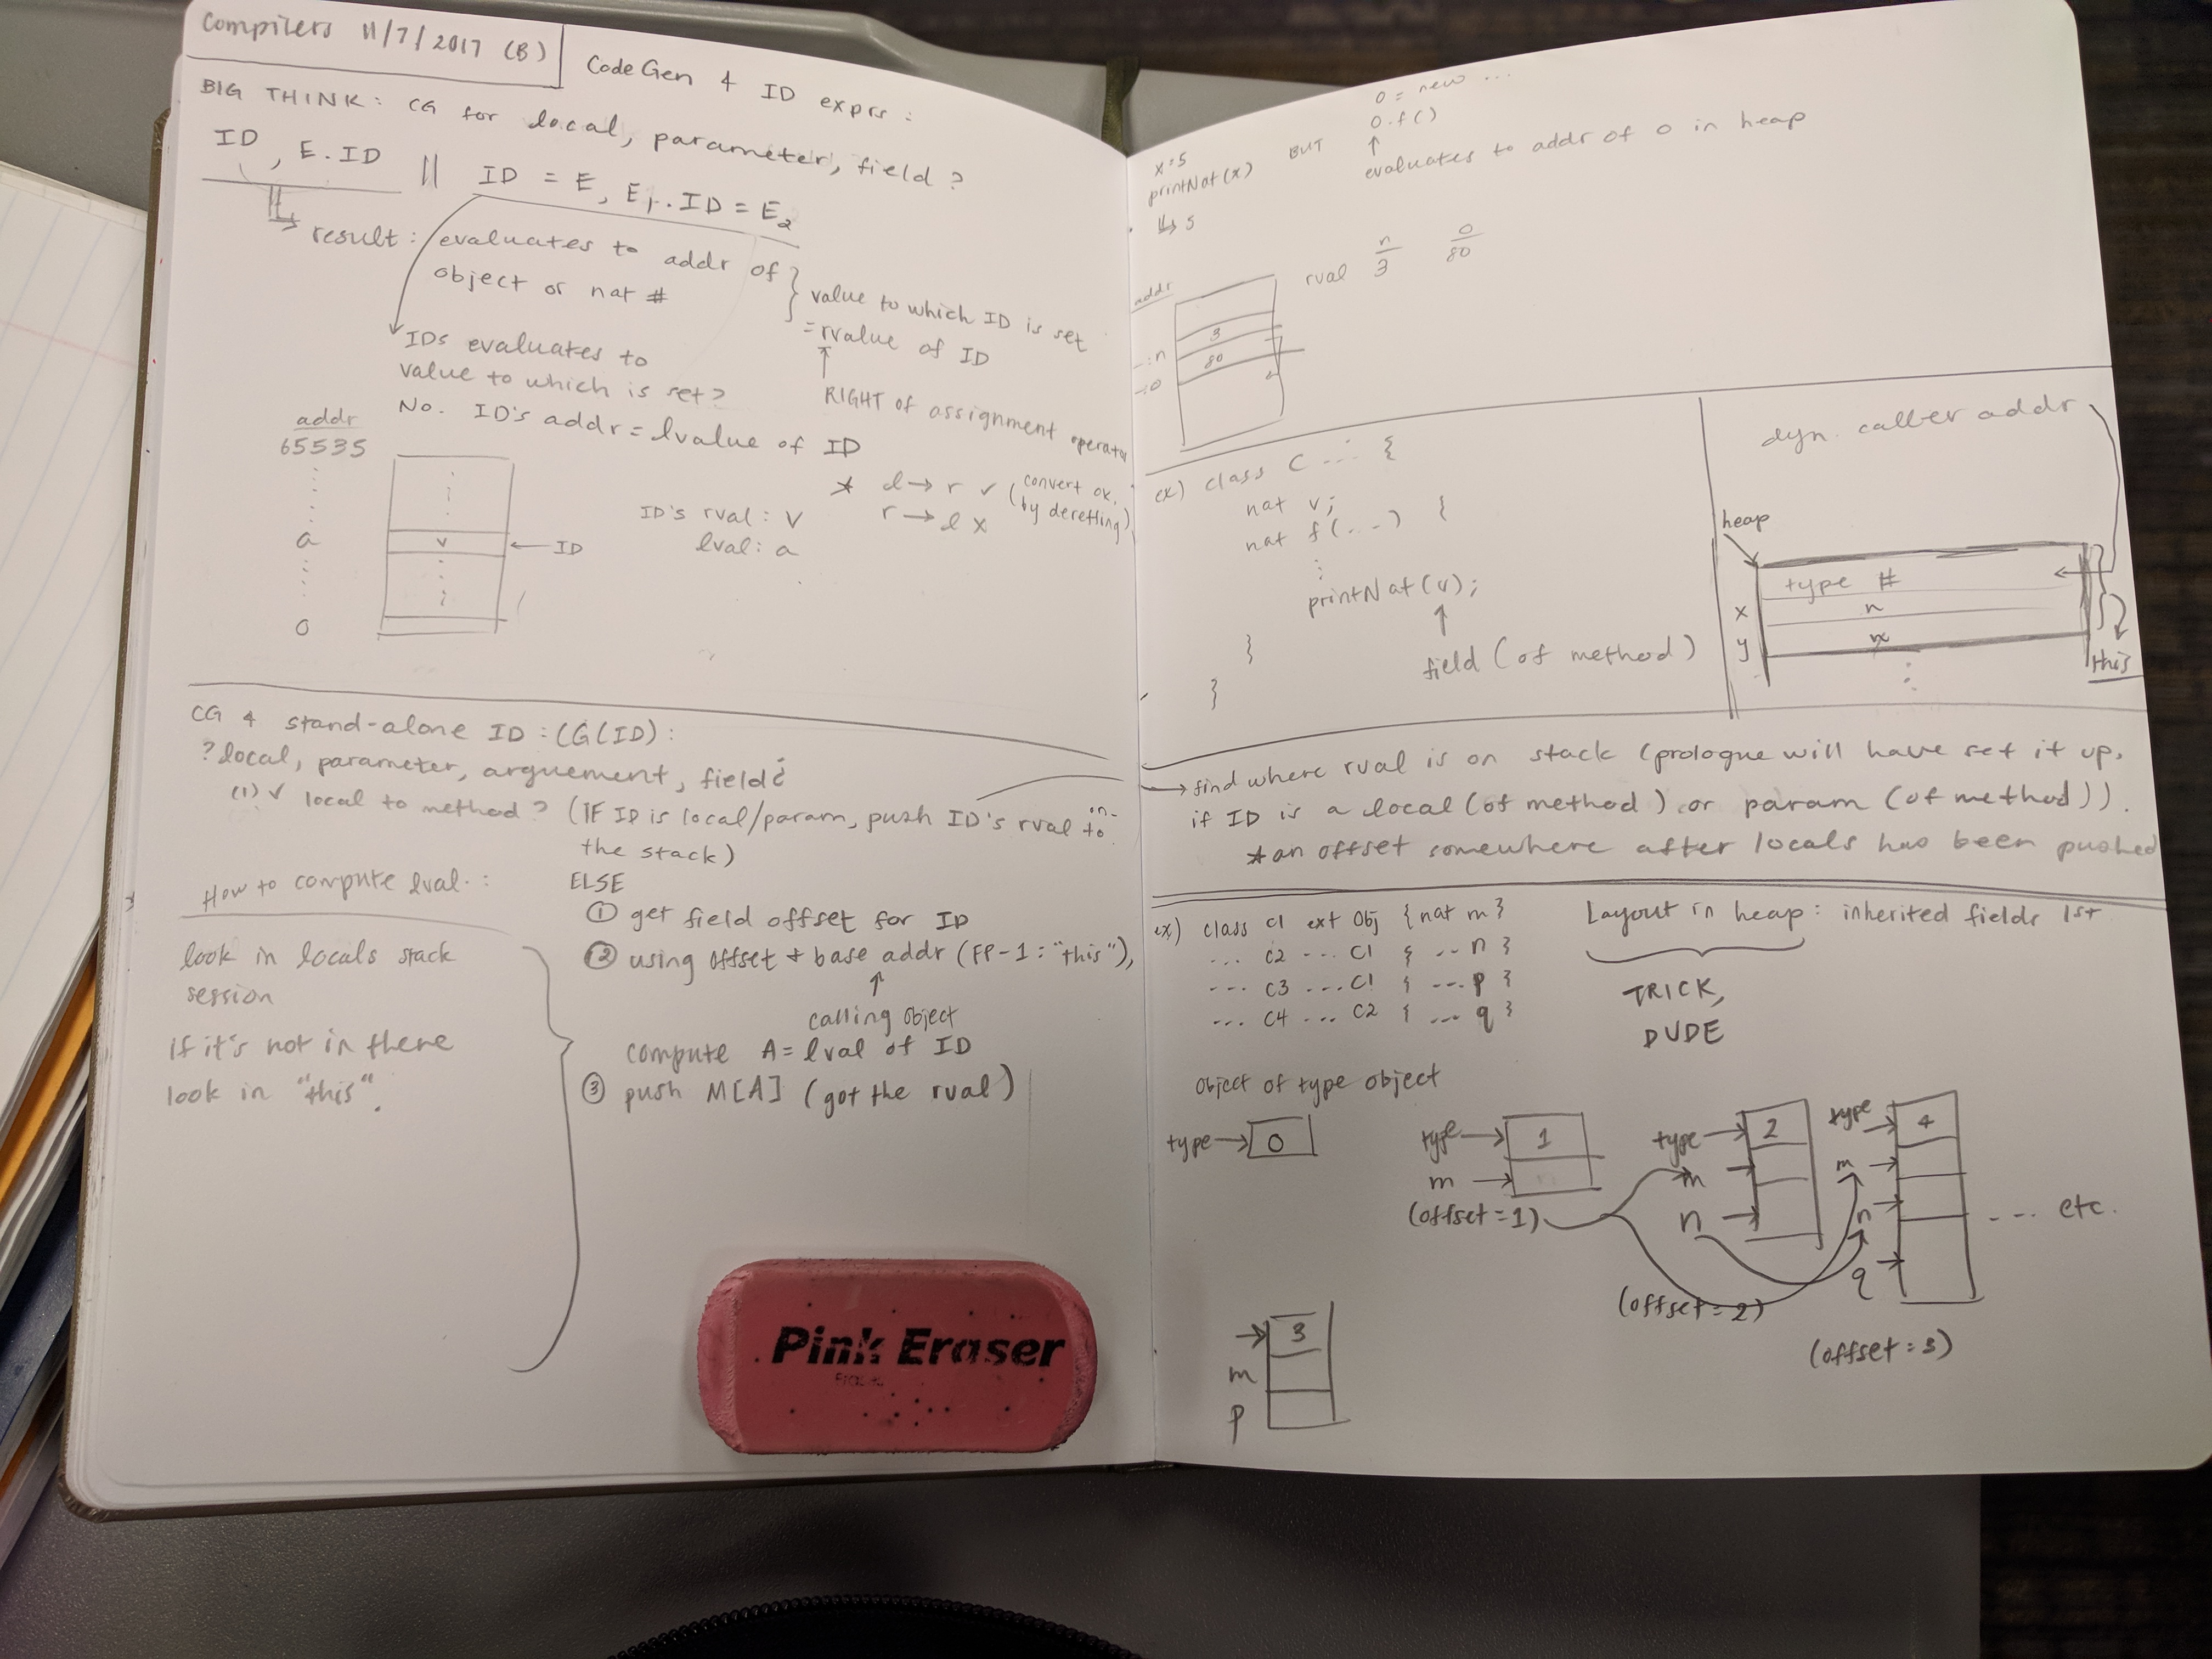 Compilers 11/7/2017 (B)
CodeGen 4 ID exprs:
BIG THINK: CG for local, parameter, field?
ID, E.ID || ID = E, E₁.ID = E₂
result: evaluates to addr of
object or nat #
value to which ID is set
= rvalue of ID
↑
RIGHT of assignment operator
IDs evaluates to
value to which is set?
No. ID's addr = lvalue of ID
addr
65535
a
0
v
← ID
ID's rval: v
lval: a
* l → r ✓ (convert ok.
by dereffing)
r → l x
CG 4 stand-alone ID: CG(ID):
?local, parameter, arguement, field¿
(1) ✓ local to method? (IF ID is local/param, push ID's rval in-
to
the stack)
ELSE
① get field offset for ID
② using offset + base addr (FP-1: "this"),
↑
calling object
compute A = lval of ID
③ push M[A] (got the rval)
How to compute lval.:
look in locals stack
session
if it's not in there
look in "this".
Pink Eraser
x=5
printNat(x)
↳ 5
BUT
o = new ...
o.f()
↑
evaluates to addr of o in heap
rval
n
3
o
80
addr
n
3
o
80
ex) class C ... {
nat v;
nat f(...) {
printNat(v);
↑
field (of method)
}
}
dyn. caller addr
heap
type #
x
n
y
this
→ find where rval is on stack (prologue will have set it up,
if ID is a local (of method) or param (of method)).
* an offset somewhere after locals has been pushed
ex) class C1 ext Obj {nat m}
... C2 ... C1 { ... n }
... C3 ... C1 { ... p }
... C4 ... C2 { ... q }
Layout in heap: inherited fields 1st
TRICK,
DUDE
Object of type object
type → 0
type → 1
m →
(offset=1)
type → 2
m →
n →
(offset=2)
type → 4
m →
n →
q →
(offset=3)
... etc.
→ 3
m
p